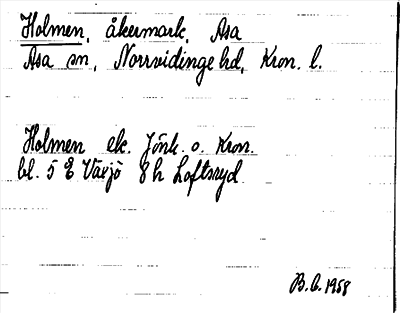 Holmen, åkermark, Asa
Asa sn, Norrvidinge hd, Kron. l.
Holmen ek. Jönk. o. Kron.
bl. 5 E Växjö 8 h Loftsryd
B.L. 1958